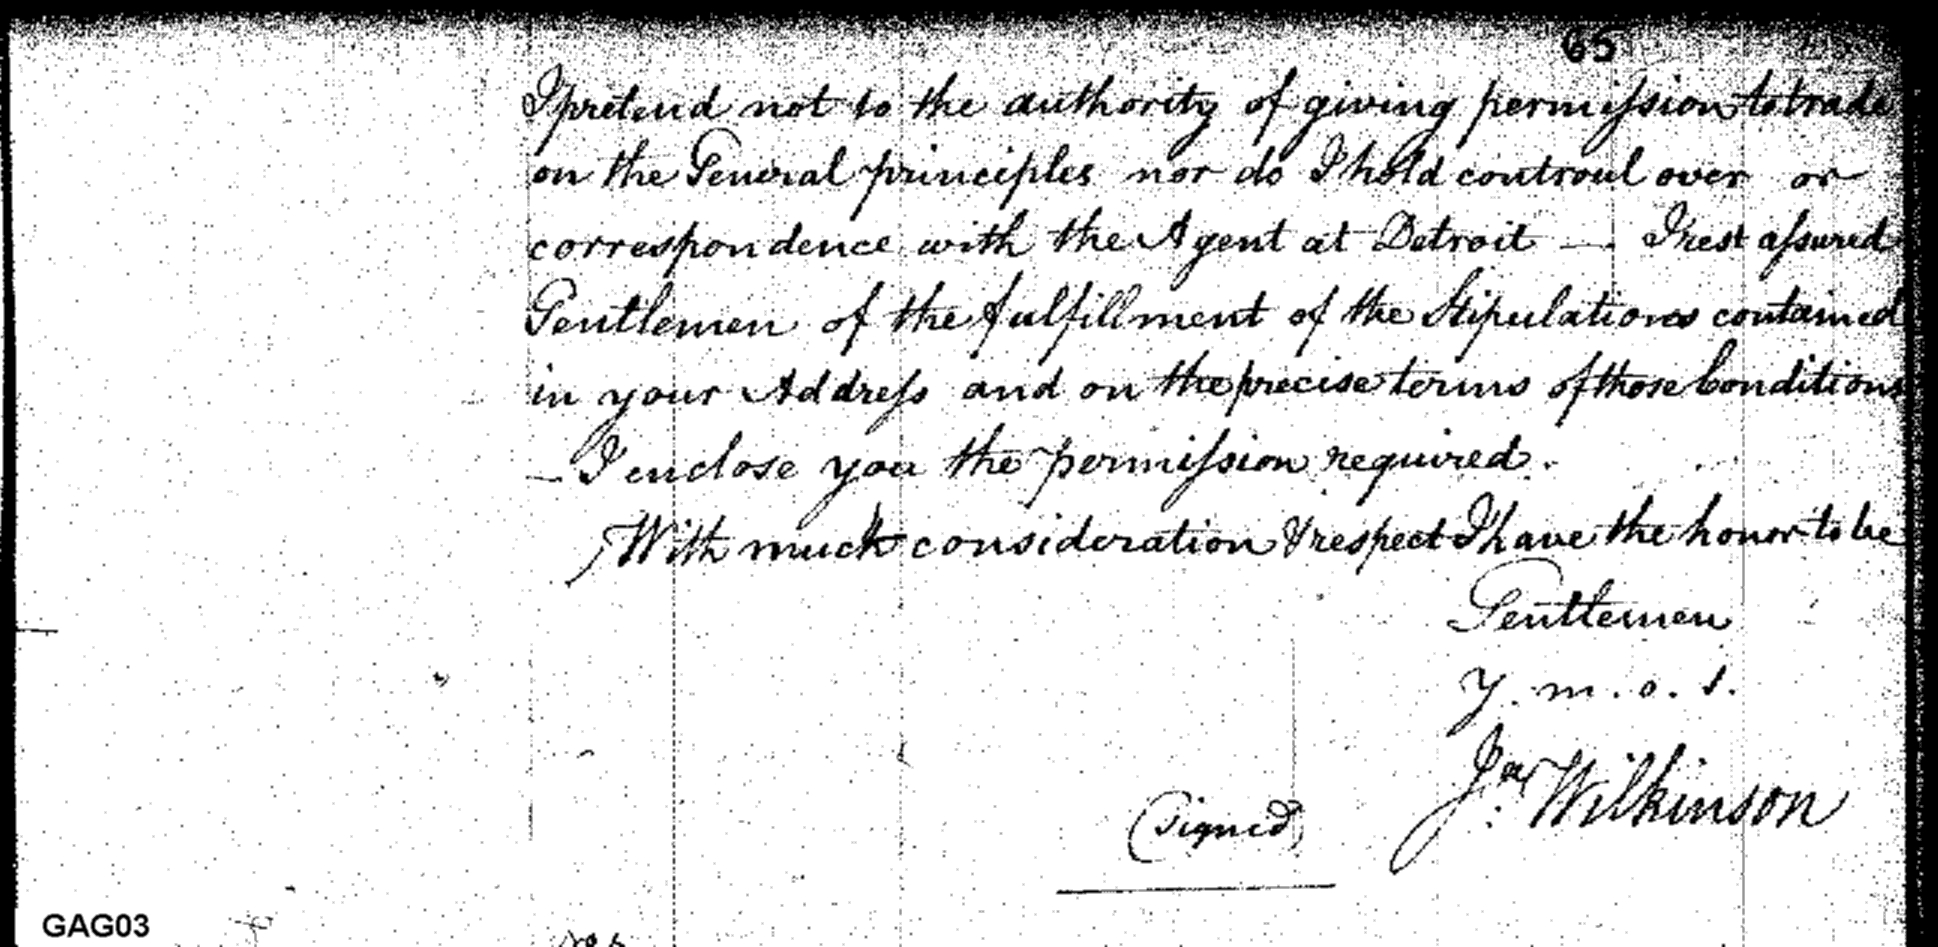 65
I pretend not to the authority of giving permission to trade
on the General principles nor do I hold controul over or
correspondence with the Agent at Detroit —. I rest assured
Gentlemen of the fulfillment of the Stipulations contained
in your Address and on the precise terms of those Conditions
— I enclose you the permission required.
With much consideration & respect I have the honor to be
Gentlemen
y. m. o. s.
Jas Wilkinson
(signed)
GAG03